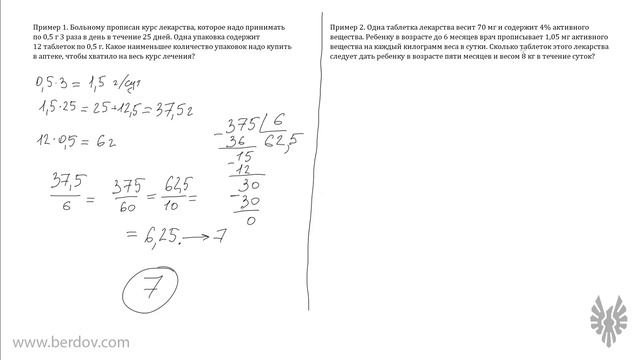 Пример 1. Больному прописан курс лекарства, которое надо принимать
по 0,5 г 3 раза в день в течение 25 дней. Одна упаковка содержит
12 таблеток по 0,5 г. Какое наименьшее количество упаковок надо купить
в аптеке, чтобы хватило на весь курс лечения?
0,5·3 = 1,5 г/сут
1,5·25 = 25+12,5 = 37,5г
12·0,5 = 6г
37,5/6 = 375/60 = 62,5/10 =
= 6,25. → 7
7
375 6
36 62,5
15
12
30
30
0
Пример 2. Одна таблетка лекарства весит 70 мг и содержит 4% активного
вещества. Ребенку в возрасте до 6 месяцев врач прописывает 1,05 мг активного
вещества на каждый килограмм веса в сутки. Сколько таблеток этого лекарства
следует дать ребенку в возрасте пяти месяцев и весом 8 кг в течение суток?
www.berdov.com